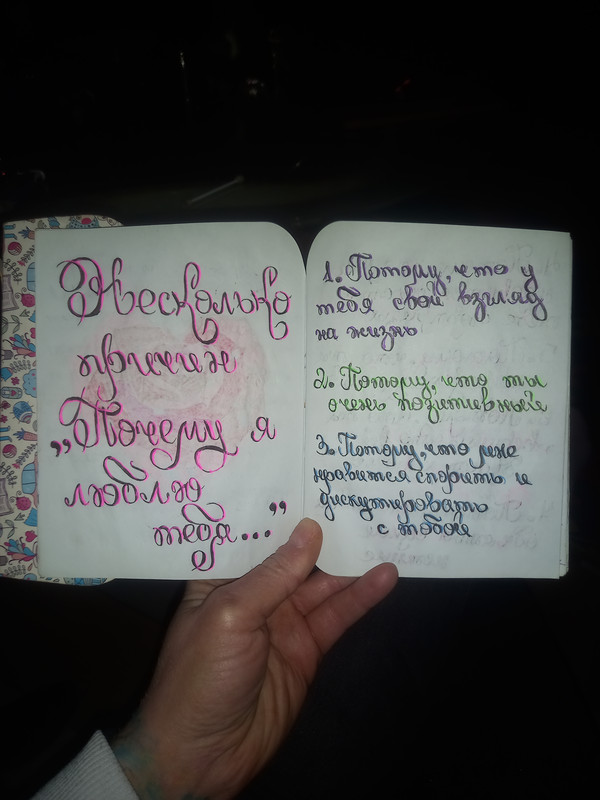 Несколько
причин
„Почему я
люблю
тебя..."
1. Потому, что у
тебя свой взгляд
на жизнь
2. Потому, что ты
очень позитивный
3. Потому, что мне
нравится спорить и
дискутировать
с тобой